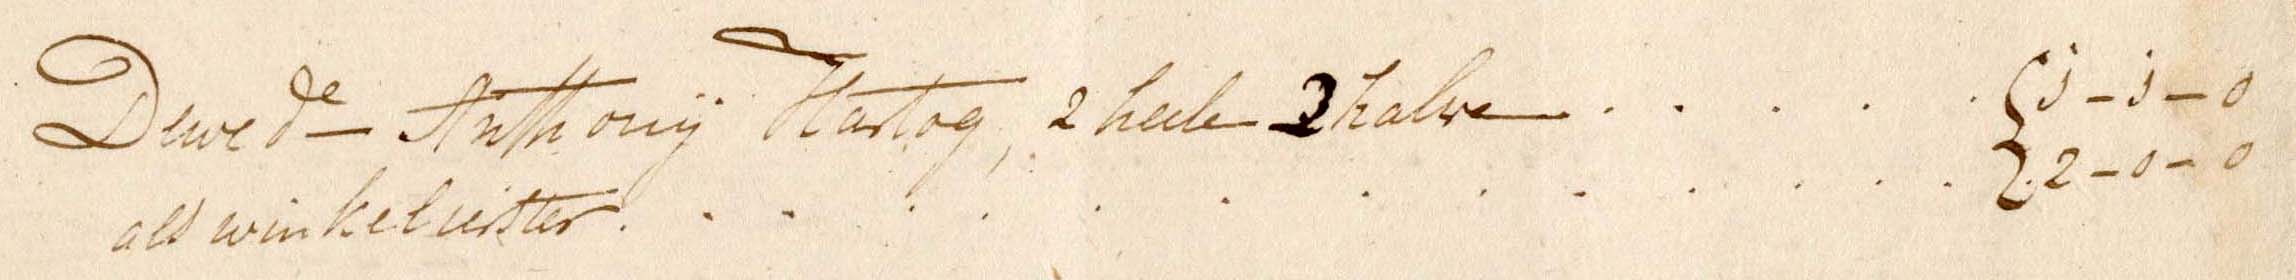 Dewed^e Anthonij Hartog, 2 heele 2 halve . . . . . { 3 - 3 - 0
als winkelierster . . . . . . . . . . . . { 2 - 0 - 0